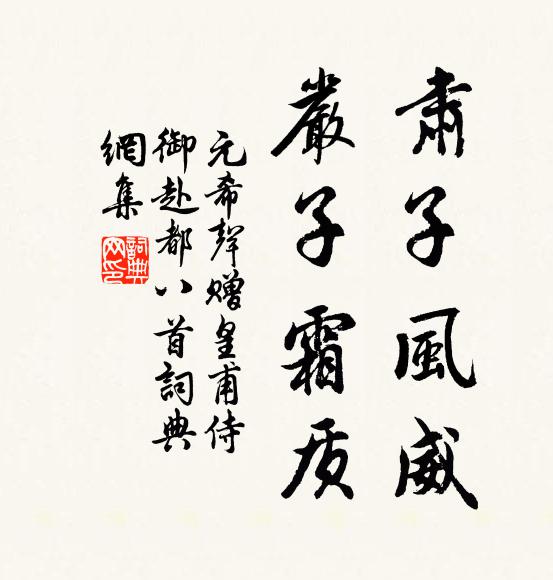 肅子風威
嚴子霜质
元希聲贈皇甫侍
御赴都八首詞典
網集
詞典
网印